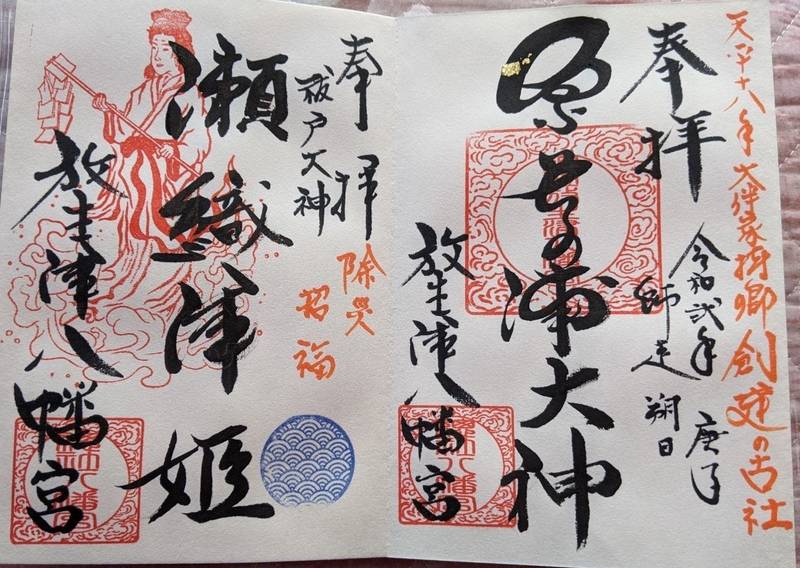 天平十八年 大伴家持卿 創建の古社
奉拝
令和弐年 庚子
師走 朔日
奈呉の浦大神
放生津八幡宮
奉拝
除災
招福
祓戸大神
瀬織津姫
放生津八幡宮